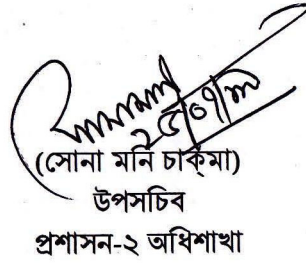 (সোনা মনি চাক্‌মা)
উপসচিব
প্রশাসন-২ অধিশাখা